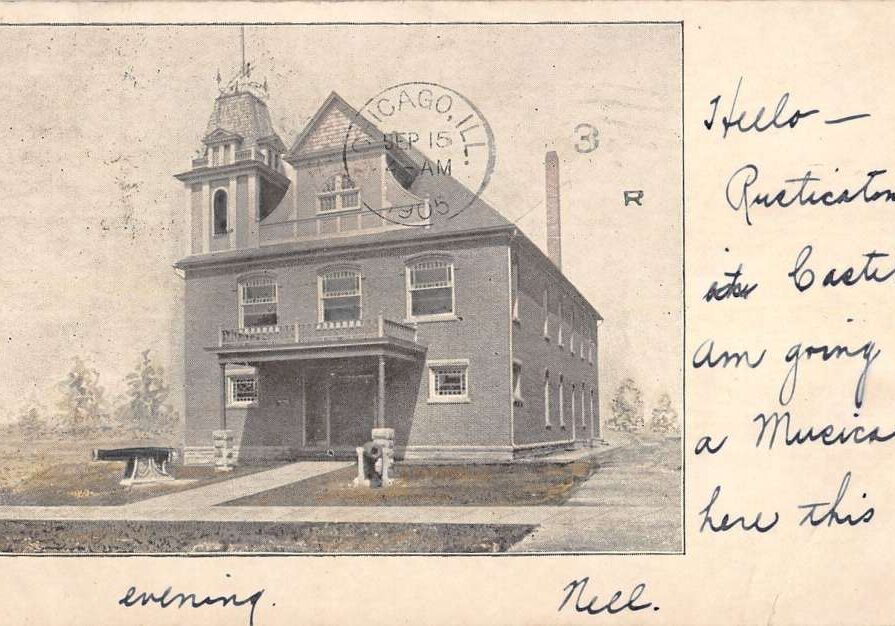 CHICAGO, ILL.
SEP 15
AM
1905
3
R
Hello —
Rusticatin
in Caste
am going
a Musica
here this
evening.
Nell.